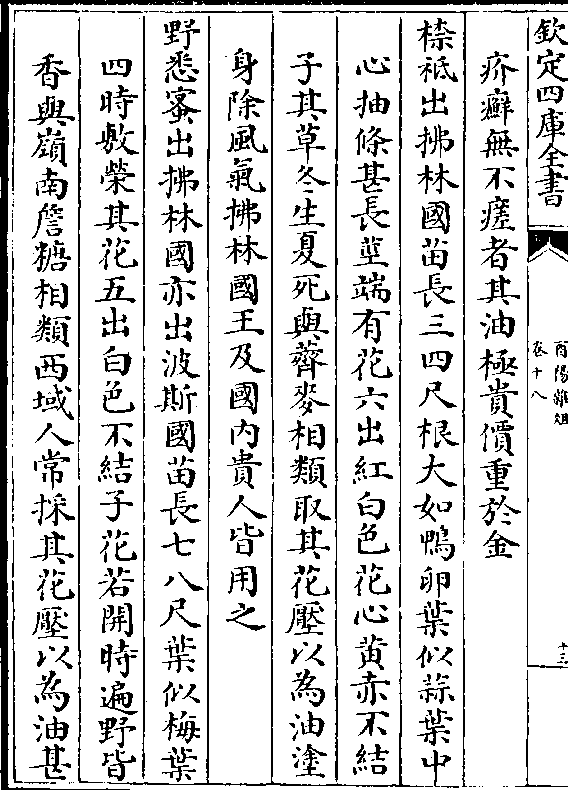 欽定四庫全書
酉陽雜俎
卷十八
十三
疥癬無不瘥者其油極貴價重於金
㮈祗出拂林國苗長三四尺根大如鴨卵葉似蒜葉中
心抽條甚長莖端有花六出紅白色花心黄赤不結
子其草冬生夏死與薺麥相類取其花壓以為油塗
身除風氣拂林國王及國内貴人皆用之
野悉蜜出拂林國亦出波斯國苗長七八尺葉似梅葉
四時敷榮其花五出白色不結子花若開時遍野皆
香與嶺南詹糖相類西域人常採其花壓以為油甚